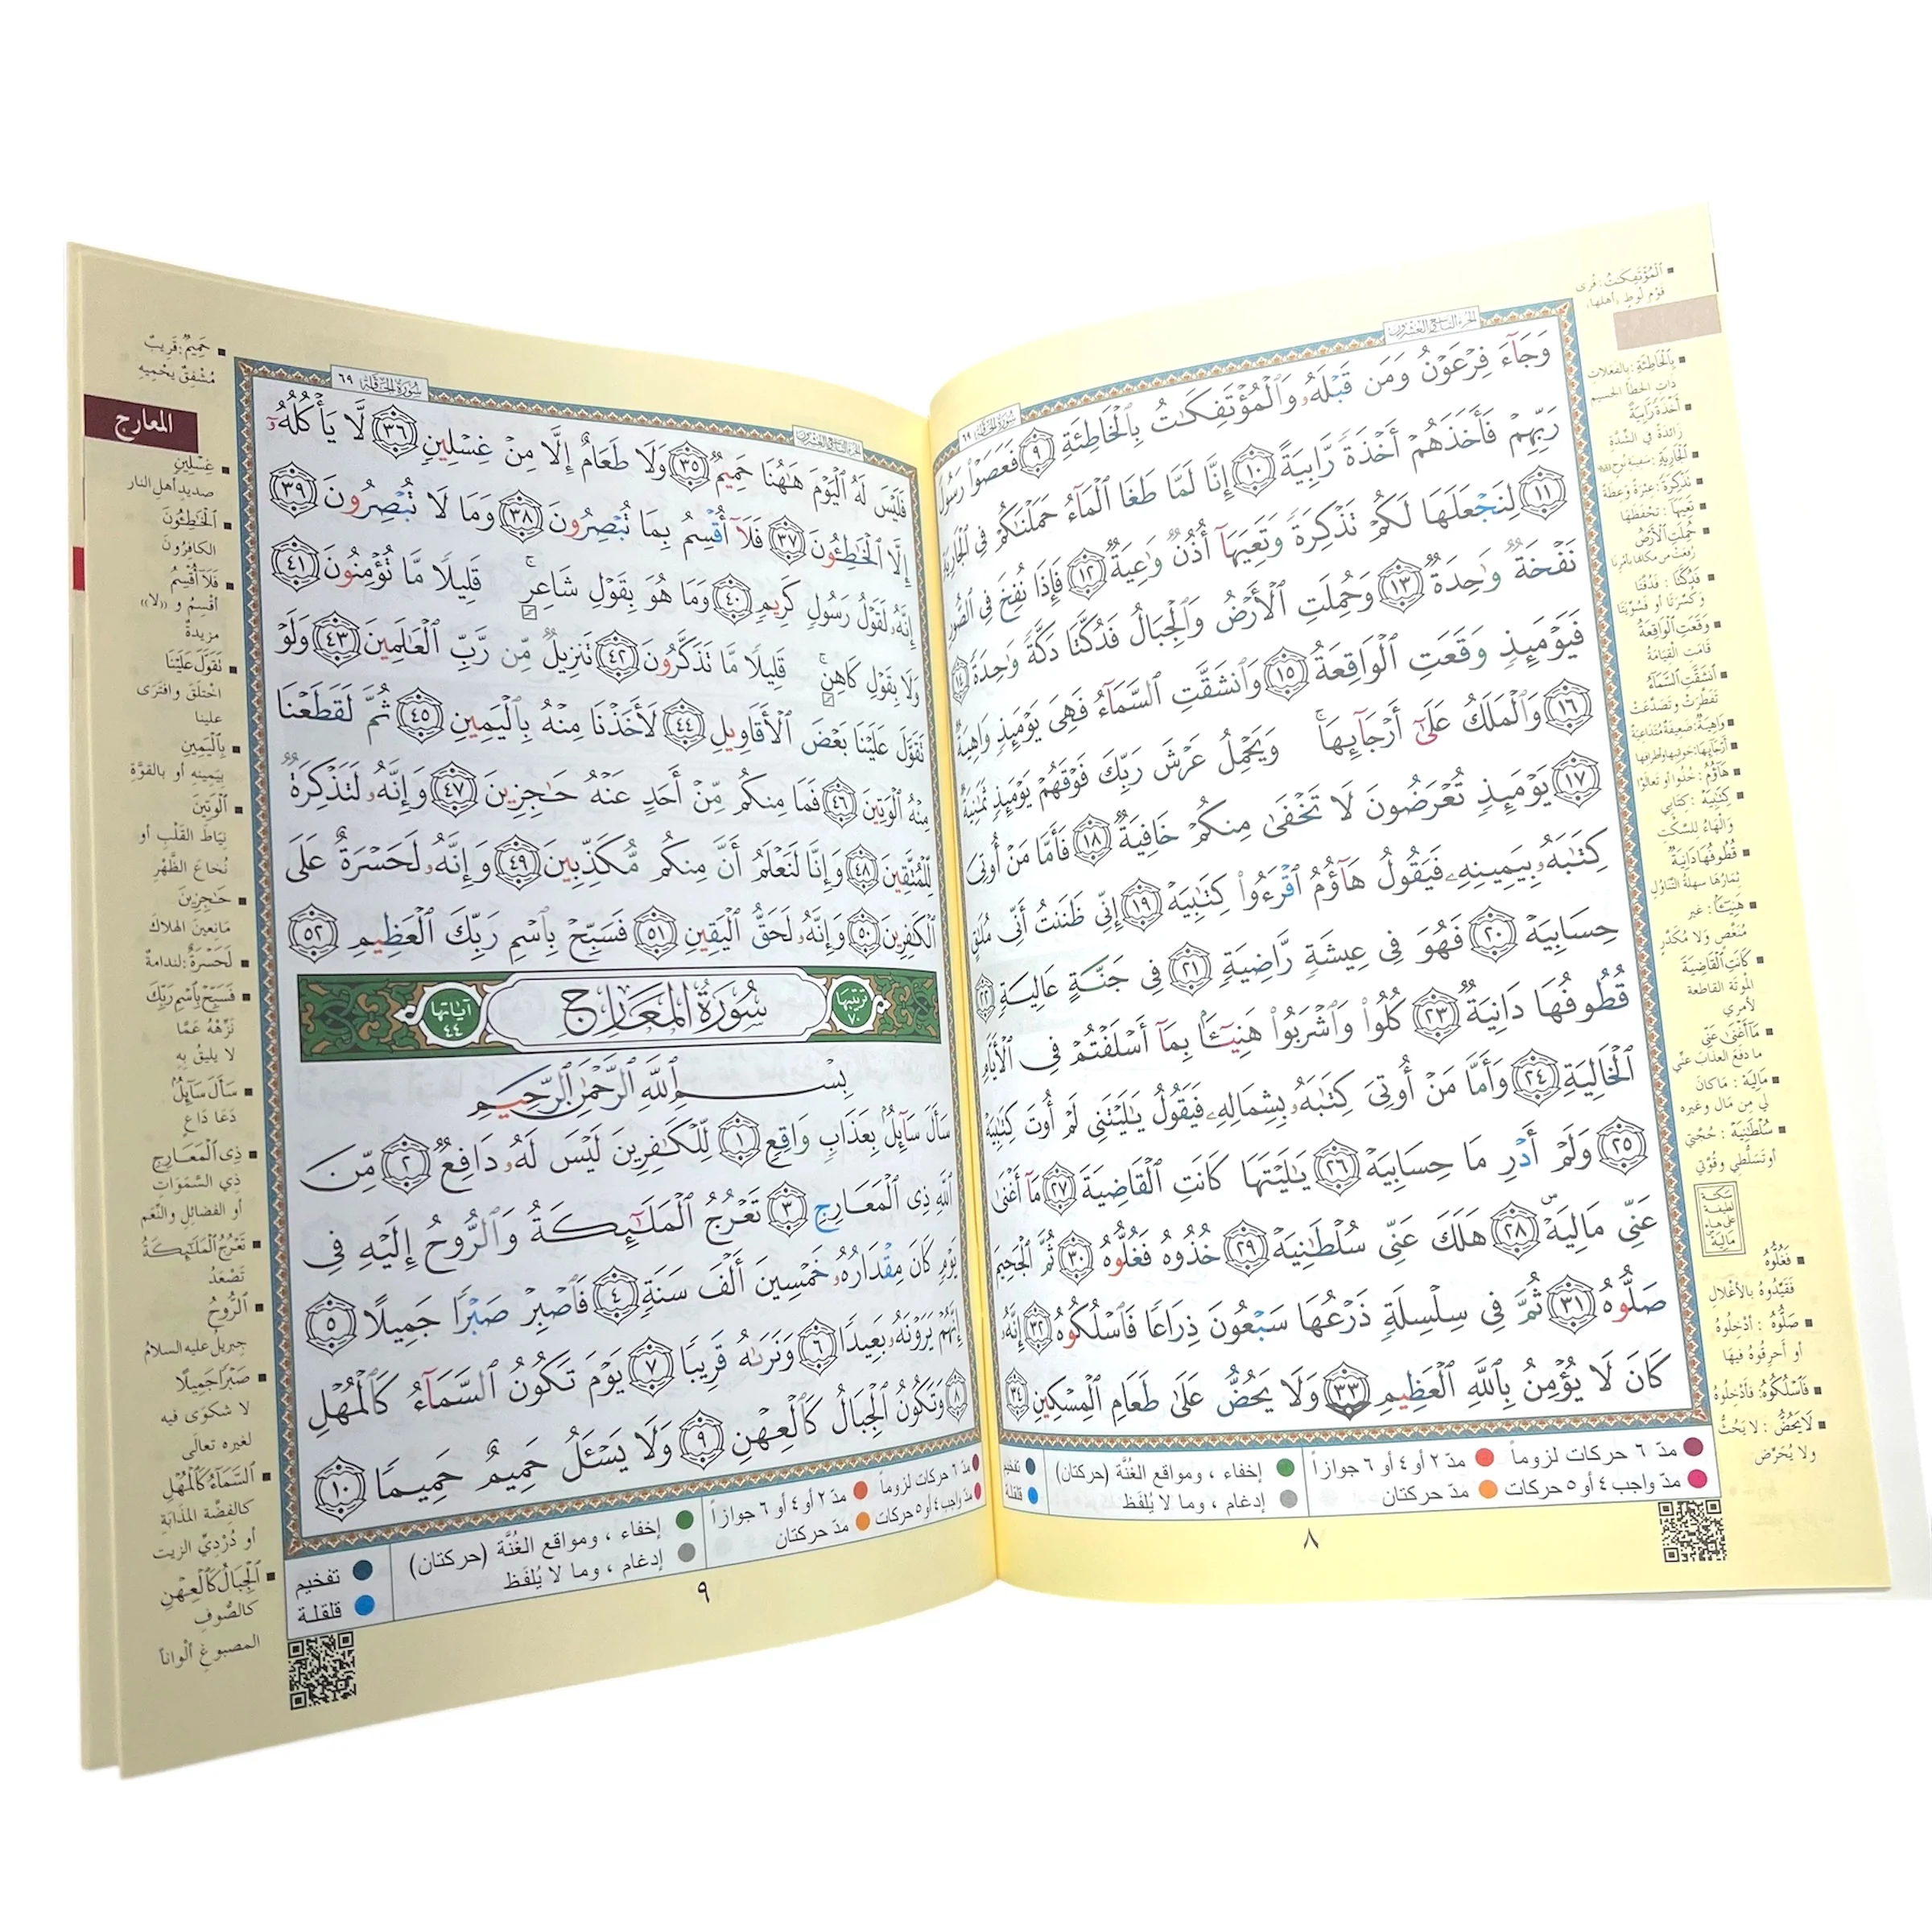 الجزء التاسع والعشرون
سورة الحاقة ٦٩
وَجَآءَ فِرْعَوْنُ وَمَن قَبْلَهُۥ وَٱلْمُؤْتَفِكَٰتُ بِٱلْخَاطِئَةِ ٩ فَعَصَوْا۟ رَسُولَ
رَبِّهِمْ فَأَخَذَهُمْ أَخْذَةً رَّابِيَةً ١٠ إِنَّا لَمَّا طَغَا ٱلْمَآءُ حَمَلْنَٰكُمْ فِى ٱلْجَارِيَةِ
١١ لِنَجْعَلَهَا لَكُمْ تَذْكِرَةً وَتَعِيَهَآ أُذُنٌ وَٰعِيَةٌ ١٢ فَإِذَا نُفِخَ فِى ٱلصُّورِ
نَفْخَةٌ وَٰحِدَةٌ ١٣ وَحُمِلَتِ ٱلْأَرْضُ وَٱلْجِبَالُ فَدُكَّتَا دَكَّةً وَٰحِدَةً ١٤
فَيَوْمَئِذٍ وَقَعَتِ ٱلْوَاقِعَةُ ١٥ وَٱنشَقَّتِ ٱلسَّمَآءُ فَهِىَ يَوْمَئِذٍ وَاهِيَةٌ
١٦ وَٱلْمَلَكُ عَلَىٰٓ أَرْجَآئِهَا ۚ وَيَحْمِلُ عَرْشَ رَبِّكَ فَوْقَهُمْ يَوْمَئِذٍ ثَمَٰنِيَةٌ
١٧ يَوْمَئِذٍ تُعْرَضُونَ لَا تَخْفَىٰ مِنكُمْ خَافِيَةٌ ١٨ فَأَمَّا مَنْ أُوتِىَ
كِتَٰبَهُۥ بِيَمِينِهِۦ فَيَقُولُ هَآؤُمُ ٱقْرَءُوا۟ كِتَٰبِيَهْ ١٩ إِنِّى ظَنَنتُ أَنِّى مُلَٰقٍ
حِسَابِيَهْ ٢٠ فَهُوَ فِى عِيشَةٍ رَّاضِيَةٍ ٢١ فِى جَنَّةٍ عَالِيَةٍ ٢٢
قُطُوفُهَا دَانِيَةٌ ٢٣ كُلُوا۟ وَٱشْرَبُوا۟ هَنِيٓـًٔۢا بِمَآ أَسْلَفْتُمْ فِى ٱلْأَيَّامِ
ٱلْخَالِيَةِ ٢٤ وَأَمَّا مَنْ أُوتِىَ كِتَٰبَهُۥ بِشِمَالِهِۦ فَيَقُولُ يَٰلَيْتَنِى لَمْ أُوتَ كِتَٰبِيَهْ
٢٥ وَلَمْ أَدْرِ مَا حِسَابِيَهْ ٢٦ يَٰلَيْتَهَا كَانَتِ ٱلْقَاضِيَةَ ٢٧ مَآ أَغْنَىٰ
عَنِّى مَالِيَهْ ۜ ٢٨ هَلَكَ عَنِّى سُلْطَٰنِيَهْ ٢٩ خُذُوهُ فَغُلُّوهُ ٣٠ ثُمَّ ٱلْجَحِيمَ
صَلُّوهُ ٣١ ثُمَّ فِى سِلْسِلَةٍ ذَرْعُهَا سَبْعُونَ ذِرَاعًا فَٱسْلُكُوهُ ٣٢ إِنَّهُۥ
كَانَ لَا يُؤْمِنُ بِٱللَّهِ ٱلْعَظِيمِ ٣٣ وَلَا يَحُضُّ عَلَىٰ طَعَامِ ٱلْمِسْكِينِ ٣٤
ٱلْمُؤْتَفِكَٰتُ: قرى
قوم لوط (أهلها)
بِٱلْخَاطِئَةِ: بالفعلات
ذات الخطأ الجسيم
أَخْذَةً رَّابِيَةً
زائدة في الشدّة
ٱلْجَارِيَةِ: سفينة نوح
تَذْكِرَةً: عبرة وعظة
تَعِيَهَا: تحفظها
حُمِلَتِ ٱلْأَرْضُ
فَدُكَّتَا: فدقّتا
وكسّرتا أو فسوّيتا
وَقَعَتِ ٱلْوَاقِعَةُ
قامت القيامة
ٱنشَقَّتِ ٱلسَّمَآءُ
تفطّرت وتصدّعت
وَاهِيَةٌ: ضعيفة متداعية
أَرْجَآئِهَا: جوانبها وأطرافها
هَآؤُمُ: خذوا أو تعالوا
كِتَٰبِيَهْ: كتابي
والهاء للسّكت
قُطُوفُهَا دَانِيَةٌ
ثمارها سهلة التناول
هَنِيٓـًٔا: غير
منغّص ولا مكدّر
كَانَتِ ٱلْقَاضِيَةَ
الموتة القاطعة
لأمري
مَآ أَغْنَىٰ عَنِّى
ما دفع العذاب عنّي
مَالِيَهْ: ما كان
لي من مال وغيره
سُلْطَٰنِيَهْ: حجّتي
أو تسلّطي وقوّتي
سكتة
لطيفة
على هاء
مَالِيَهْ
فَغُلُّوهُ
فقيّدوه بالأغلال
صَلُّوهُ: أدخلوه
أو أحرقوه فيها
فَٱسْلُكُوهُ: فأدخلوه
لَا يَحُضُّ: لا يحثّ
ولا يحرّض
مدّ ٦ حركات لزوماً
مدّ ٢ أو ٤ أو ٦ جوازاً
إخفاء ، ومواقع الغُنَّة (حركتان)
تفخيم
مدّ واجب ٤ أو ٥ حركات
مدّ حركتان
إدغام ، وما لا يُلفَظ
قلقلة
٨
سورة الحاقة ٦٩
الجزء التاسع والعشرون
فَلَيْسَ لَهُ ٱلْيَوْمَ هَٰهُنَا حَمِيمٌ ٣٥ وَلَا طَعَامٌ إِلَّا مِنْ غِسْلِينٍ ٣٦ لَّا يَأْكُلُهُۥٓ
إِلَّا ٱلْخَٰطِـُٔونَ ٣٧ فَلَآ أُقْسِمُ بِمَا تُبْصِرُونَ ٣٨ وَمَا لَا تُبْصِرُونَ ٣٩
إِنَّهُۥ لَقَوْلُ رَسُولٍ كَرِيمٍ ٤٠ وَمَا هُوَ بِقَوْلِ شَاعِرٍ ۚ قَلِيلًا مَّا تُؤْمِنُونَ ٤١
وَلَا بِقَوْلِ كَاهِنٍ ۚ قَلِيلًا مَّا تَذَكَّرُونَ ٤٢ تَنزِيلٌ مِّن رَّبِّ ٱلْعَٰلَمِينَ ٤٣ وَلَوْ
تَقَوَّلَ عَلَيْنَا بَعْضَ ٱلْأَقَاوِيلِ ٤٤ لَأَخَذْنَا مِنْهُ بِٱلْيَمِينِ ٤٥ ثُمَّ لَقَطَعْنَا
مِنْهُ ٱلْوَتِينَ ٤٦ فَمَا مِنكُم مِّنْ أَحَدٍ عَنْهُ حَٰجِزِينَ ٤٧ وَإِنَّهُۥ لَتَذْكِرَةٌ
لِّلْمُتَّقِينَ ٤٨ وَإِنَّا لَنَعْلَمُ أَنَّ مِنكُم مُّكَذِّبِينَ ٤٩ وَإِنَّهُۥ لَحَسْرَةٌ عَلَى
ٱلْكَٰفِرِينَ ٥٠ وَإِنَّهُۥ لَحَقُّ ٱلْيَقِينِ ٥١ فَسَبِّحْ بِٱسْمِ رَبِّكَ ٱلْعَظِيمِ ٥٢
ترتيبها ٧٠ سُورَةُ المَعَارِج آياتها ٤٤
بِسْمِ ٱللَّهِ ٱلرَّحْمَٰنِ ٱلرَّحِيمِ
سَأَلَ سَآئِلٌۢ بِعَذَابٍ وَاقِعٍ ١ لِّلْكَٰفِرِينَ لَيْسَ لَهُۥ دَافِعٌ ٢ مِّنَ
ٱللَّهِ ذِى ٱلْمَعَارِجِ ٣ تَعْرُجُ ٱلْمَلَٰٓئِكَةُ وَٱلرُّوحُ إِلَيْهِ فِى
يَوْمٍ كَانَ مِقْدَارُهُۥ خَمْسِينَ أَلْفَ سَنَةٍ ٤ فَٱصْبِرْ صَبْرًا جَمِيلًا ٥
إِنَّهُمْ يَرَوْنَهُۥ بَعِيدًا ٦ وَنَرَىٰهُ قَرِيبًا ٧ يَوْمَ تَكُونُ ٱلسَّمَآءُ كَٱلْمُهْلِ
٨ وَتَكُونُ ٱلْجِبَالُ كَٱلْعِهْنِ ٩ وَلَا يَسْـَٔلُ حَمِيمٌ حَمِيمًا ١٠
حَمِيمٌ: قريب
مشفق يحميه
المعارج
غِسْلِينٍ
صديد أهل النار
ٱلْخَٰطِـُٔونَ
الكافرون
فَلَآ أُقْسِمُ
أقسم و «لا»
مزيدة
تَقَوَّلَ عَلَيْنَا
اختلق وافترى
علينا
بِٱلْيَمِينِ
بيمينه أو بالقوّة
ٱلْوَتِينَ
نياط القلب أو
نخاع الظّهر
حَٰجِزِينَ
مانعين الهلاك
لَحَسْرَةٌ: لندامة
فَسَبِّحْ بِٱسْمِ رَبِّكَ
نزّهه عمّا
لا يليق به
سَأَلَ سَآئِلٌ
دعا داع
ذِى ٱلْمَعَارِجِ
ذي السّموات
أو الفضائل والنّعم
تَعْرُجُ ٱلْمَلَٰٓئِكَةُ
تصعد
ٱلرُّوحُ
جبريل عليه السلام
صَبْرًا جَمِيلًا
لا شكوى فيه
لغيره تعالى
ٱلسَّمَآءُ كَٱلْمُهْلِ
كالفضّة المذابة
أو درديّ الزيت
ٱلْجِبَالُ كَٱلْعِهْنِ
كالصّوف
المصبوغ ألواناً
مدّ ٦ حركات لزوماً
مدّ ٢ أو ٤ أو ٦ جوازاً
إخفاء ، ومواقع الغُنَّة (حركتان)
تفخيم
مدّ واجب ٤ أو ٥ حركات
مدّ حركتان
إدغام ، وما لا يُلفَظ
قلقلة
٩